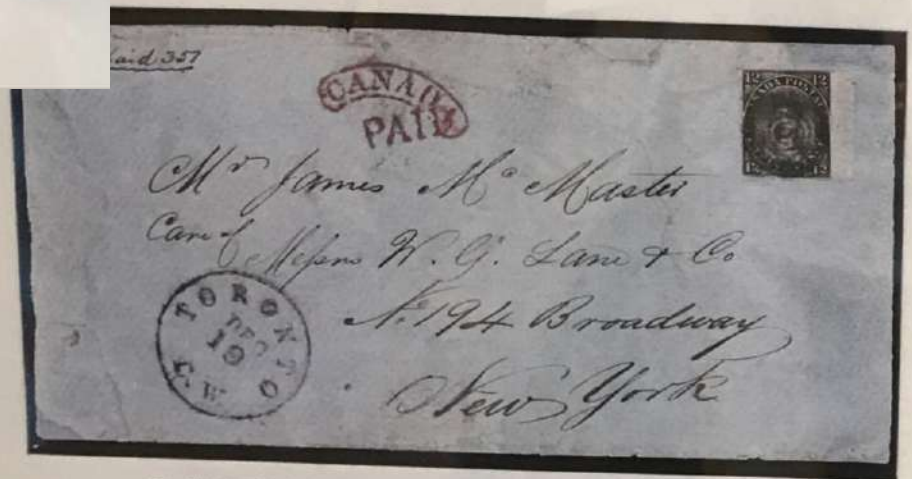 aid 357
CANADA
PAID
12 12
CANADA POSTAGE
12 12
Mr James Mc Master
Care of
Messrs W. G. Lane & Co
No 194 Broadway
New York
TORONTO
DEC
19
C.W